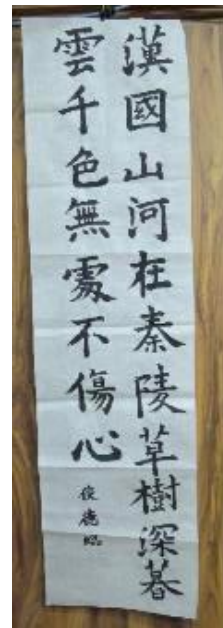 漢國山河在秦陵草樹深暮
雲千色無處不傷心
俊德臨